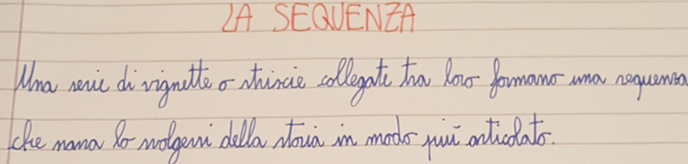 LA SEQUENZA
Una serie di vignette o striscie collegate tra loro formano una sequenza
che narra lo svolgersi della storia in modo più articolato.